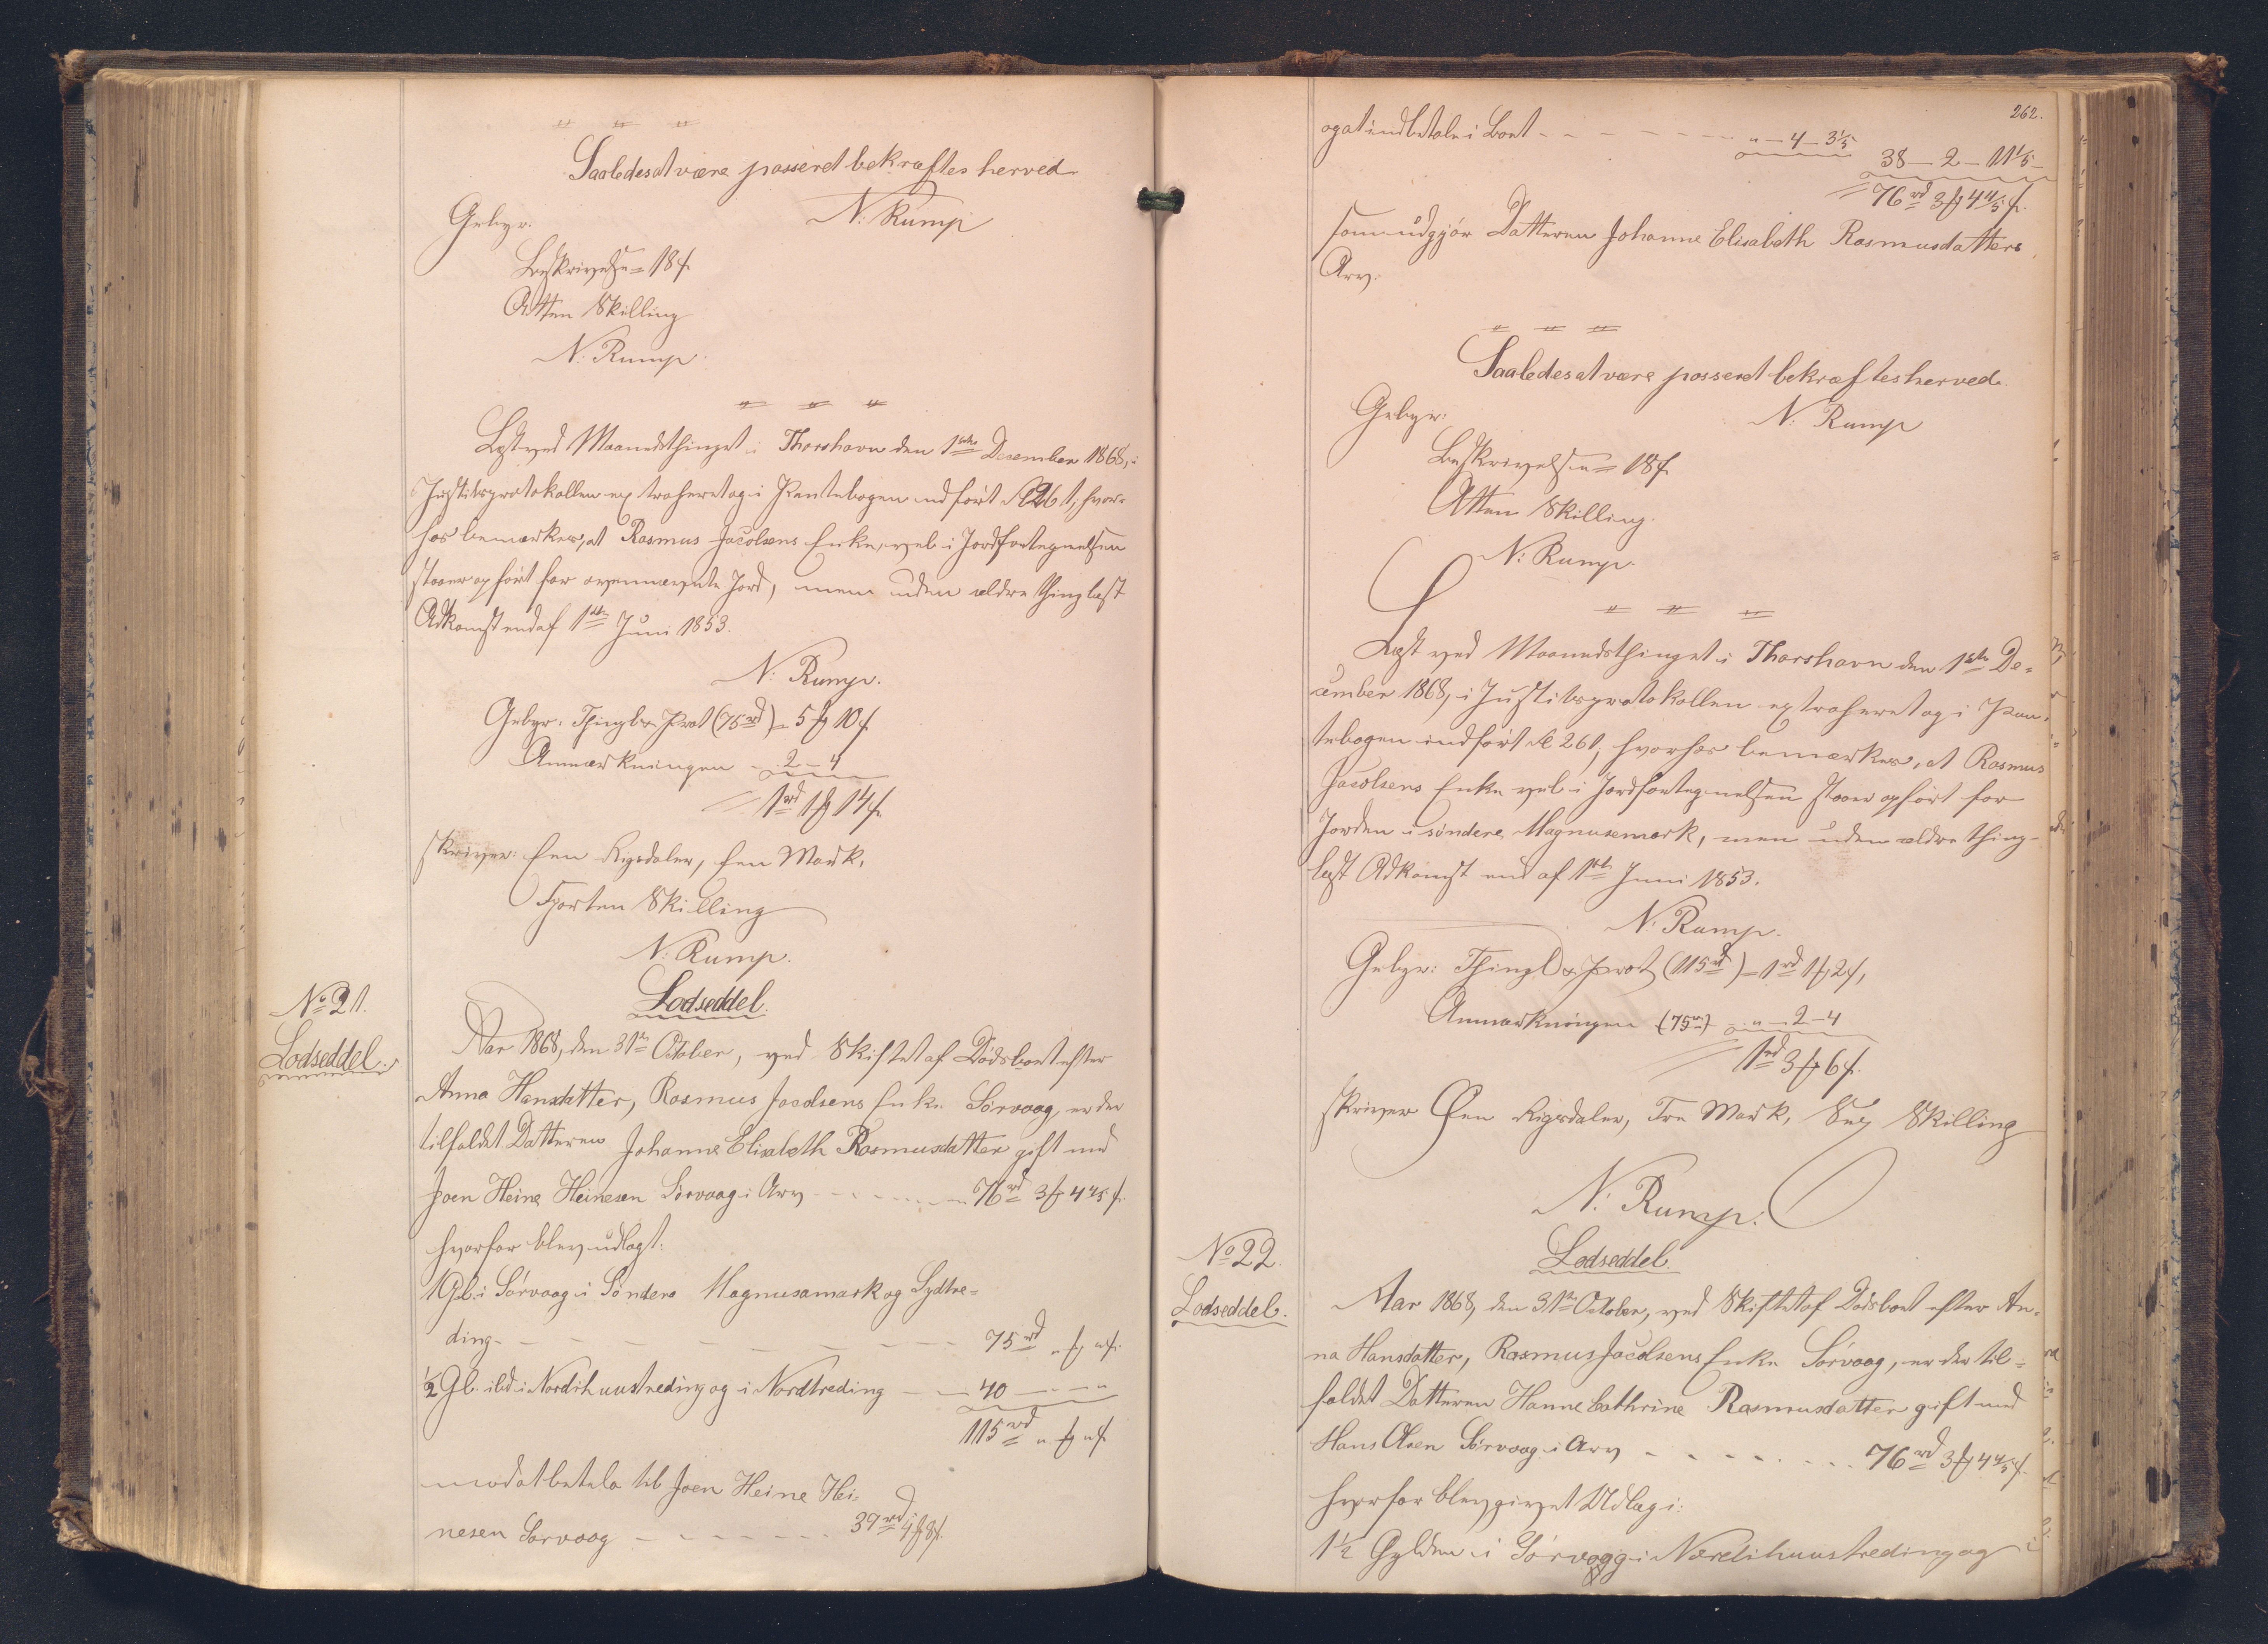 Saaledes at være passeret bekræftes herved.
N. Rump
Gebyr.
Beskrivelsen = 18 ſ.
Atten Skilling
N. Rump.
Læst ved Maanedsthinget i Thorshavn den 1ste December 1868, i
Justitsprotokollen extraheret og i Pantebogen indført № 261, hvor-
hos bemærkes, at Rasmus Jacobsens Enke, vel i Jordfortegnelsen
staaer opført for ovennævnte Jord, men uden ældre thinglæst
Adkomst end af 1ste Juni 1853.
N. Rump.
Gebyr. Thingl. & Prot (75 rd) = 5 ℳ 10 ſ
Anmærkningen - 2 - 4
1 rd 1 ℳ 14 ſ.
skriver: Een Rigsdaler, Een Mark,
Fjorten Skilling
N. Rump.
No 21.
Lodseddel.
Lodseddel.
Aar 1868, den 31te October, ved Skiftet af Dødsboet efter
Anna Hansdatter, Rasmus Jacobsens Enke Sørvaag, er der
tilfaldet Datteren Johanne Elisabeth Rasmusdatter gift med
Joen Heine Heinesen Sørvaag i Arv - - - 76 rd 3 ℳ 4 4/5 ſ.
hvorfor blev udlagt:
1 Gl. i Sørvaag i Søndere Magnusamark og Sydtre-
ding - - - 75 rd " ℳ " ſ.
½ Gl. ibd i Nordihuustreding og i Nordtreding - - 40 - " - "
115 rd " ℳ " ſ
mod at betale til Joen Heine Hei-
nesen Sørvaag - - - 39 rd 4 ℳ 8 ſ.
262.
og at indbetale i Boet - - - " - 4 - 3 1/5
38 - 2 - 11 1/5 -
= 76 rd 3 ℳ 4 4/5 ſ.
som udgjør Datteren Johanne Elisabeth Rasmusdatters
Arv.
Saaledes at være passeret bekræftes herved.
Gebyr:
N. Rump
Beskrivelsen = 18 ſ
Atten Skilling.
N. Rump.
Læst ved Maanedsthinget i Thorshavn den 1ste De-
cember 1868, i Justitsprotokollen extraheret og i Pan-
tebogen indført № 261, hvorhos bemærkes, at Rasmus
Jacobsens Enke vel i Jordfortegnelsen staaer opført for
Jorden i søndere Magnusemark, men uden ældre thing-
læst Adkomst end af 1ste Juni 1853.
N. Rump.
Gebyr: Thingl & Prot (115 rd) = 1 rd 1 ℳ 2 ſ,
Anmærkningen (75 rd) - " - 2 - 4
1 rd 3 ℳ 6 ſ.
skriver Een Rigsdaler, Tre Mark, Sex Skilling
N. Rump.
No 22.
Lodseddel.
Lodseddel.
Aar 1868, den 31te October, ved Skiftet af Dødsboet efter An-
na Hansdatter, Rasmus Jacobsens Enke Sørvaag, er der til-
faldet Datteren Hanne Cathrine Rasmusdatter gift med
Hans Olsen Sørvaag i Arv - - - 76 rd 3 ℳ 4 4/5 ſ.
hvorfor blev givet Udlæg i:
1½ Gylden i Sørvaag i Nordihuustreding og